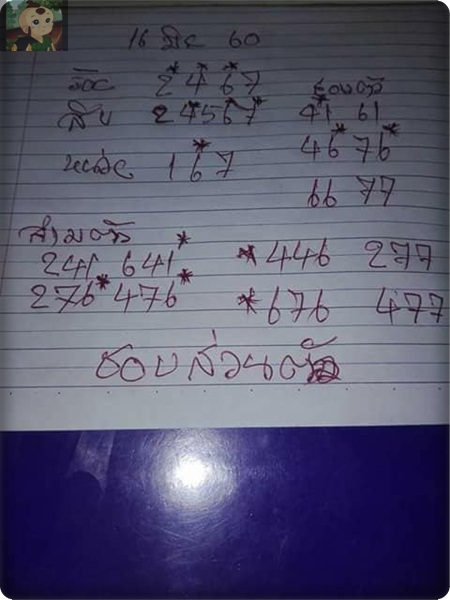 16 มิย 60
ร้อย 2* 4* 6* 7
สิบ 2 4* 5 6* 7*
หน่วย 1 6* 7
สองตัว
41* 61
46* 76*
66 77
สามตัว
241 641*
276* 476*
*446 277
*676 477
ชอบส่วนตัว